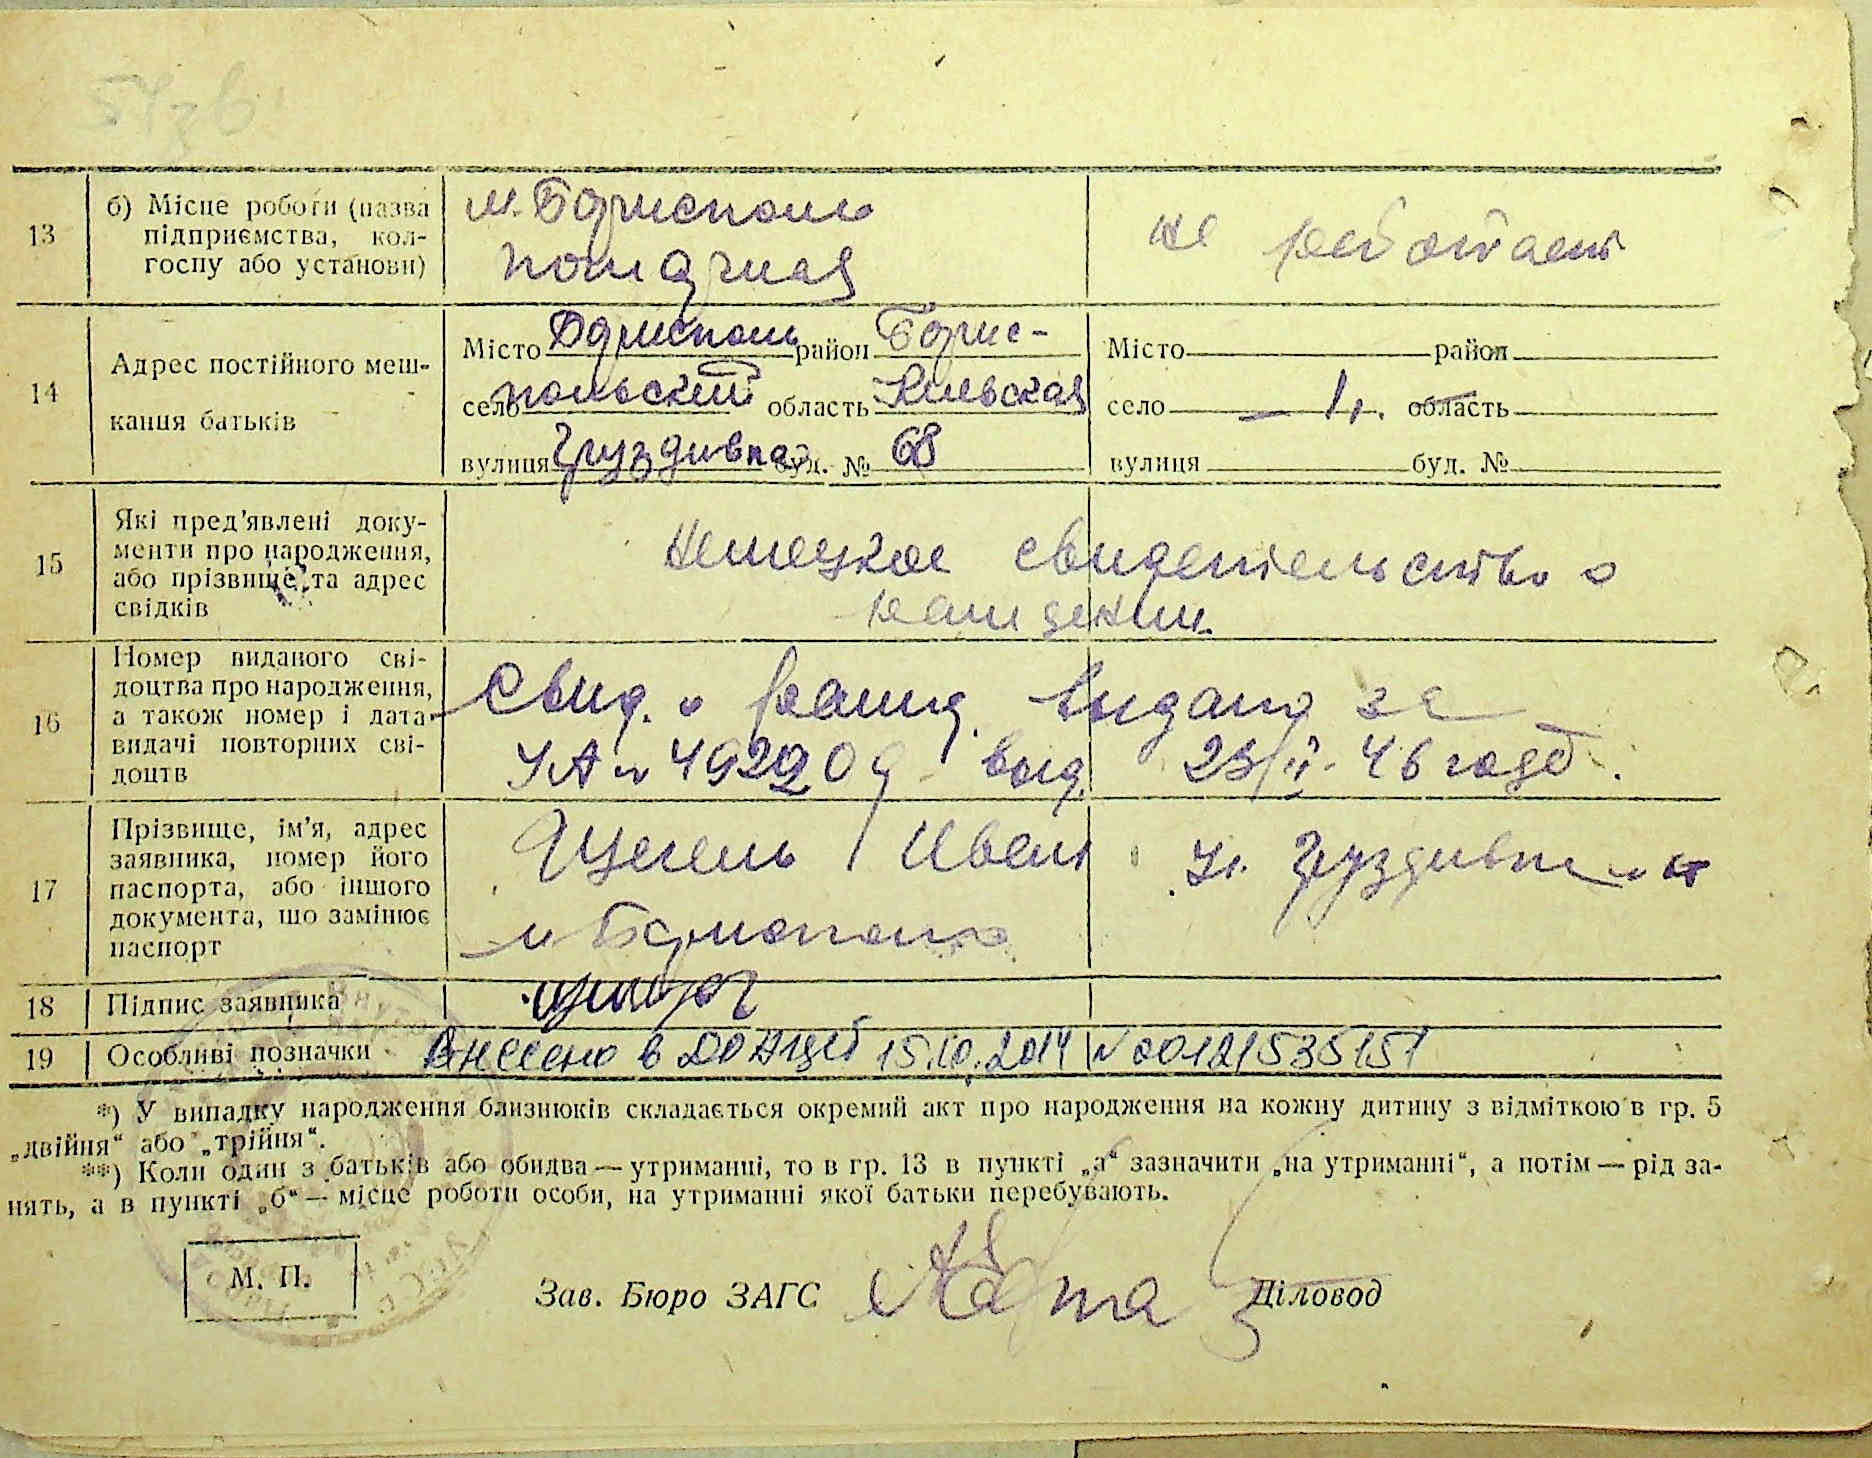 13
б) Місце роботи (назва
підприємства, кол-
госпу або установи)
м. Борисполь
не работает
14
Адрес постійного меш-
кання батьків
Місто Борисполь район Борис-
село польский область Киевская
вулиця буд. № 68
Місто район
село область
вулиця буд. №
15
Які пред'явлені доку-
менти про народження,
або прізвище та адрес
свідків
немецкое свидетельство о
рождении.
16
Номер виданого сві-
доцтва про народження,
а також номер і дата
видачі повторних сві-
доцтв
Свид. о рожд. выдано за
выд 23/II-46 года.
17
Прізвище, ім'я, адрес
заявника, номер його
паспорта, або іншого
документа, що замінює
паспорт
Иван
м Борисполь
18
Підпис заявника
19
Особливі позначки
Внесено в ДРАЦС 15.10.2014 N 00121535151
*) У випадку народження близнюків складається окремий акт про народження на кожну дитину з відміткою в гр. 5
„двійня“ або „трійня“.
**) Коли один з батьків або обидва — утриманці, то в гр. 13 в пункті „а“ зазначити „на утриманні“, а потім — рід за-
нять, а в пункті „б“ — місце роботи особи, на утриманні якої батьки перебувають.
М. П.
Зав. Бюро ЗАГС
Діловод